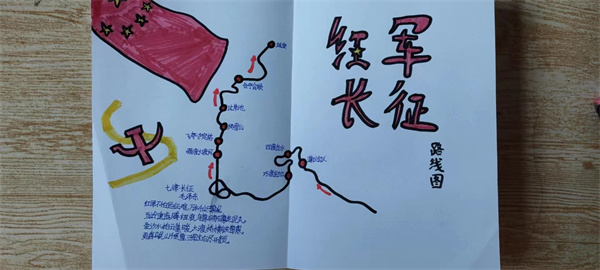 红军
长征
路线图
会宁会师
过草地
飞夺泸定桥
强渡大渡河
四渡赤水
遵义会议
七律·长征
毛泽东
红军不怕远征难,万水千山只等闲。
五岭逶迤腾细浪,乌蒙磅礴走泥丸。
金沙水拍云崖暖,大渡桥横铁索寒。
更喜岷山千里雪,三军过后尽开颜。